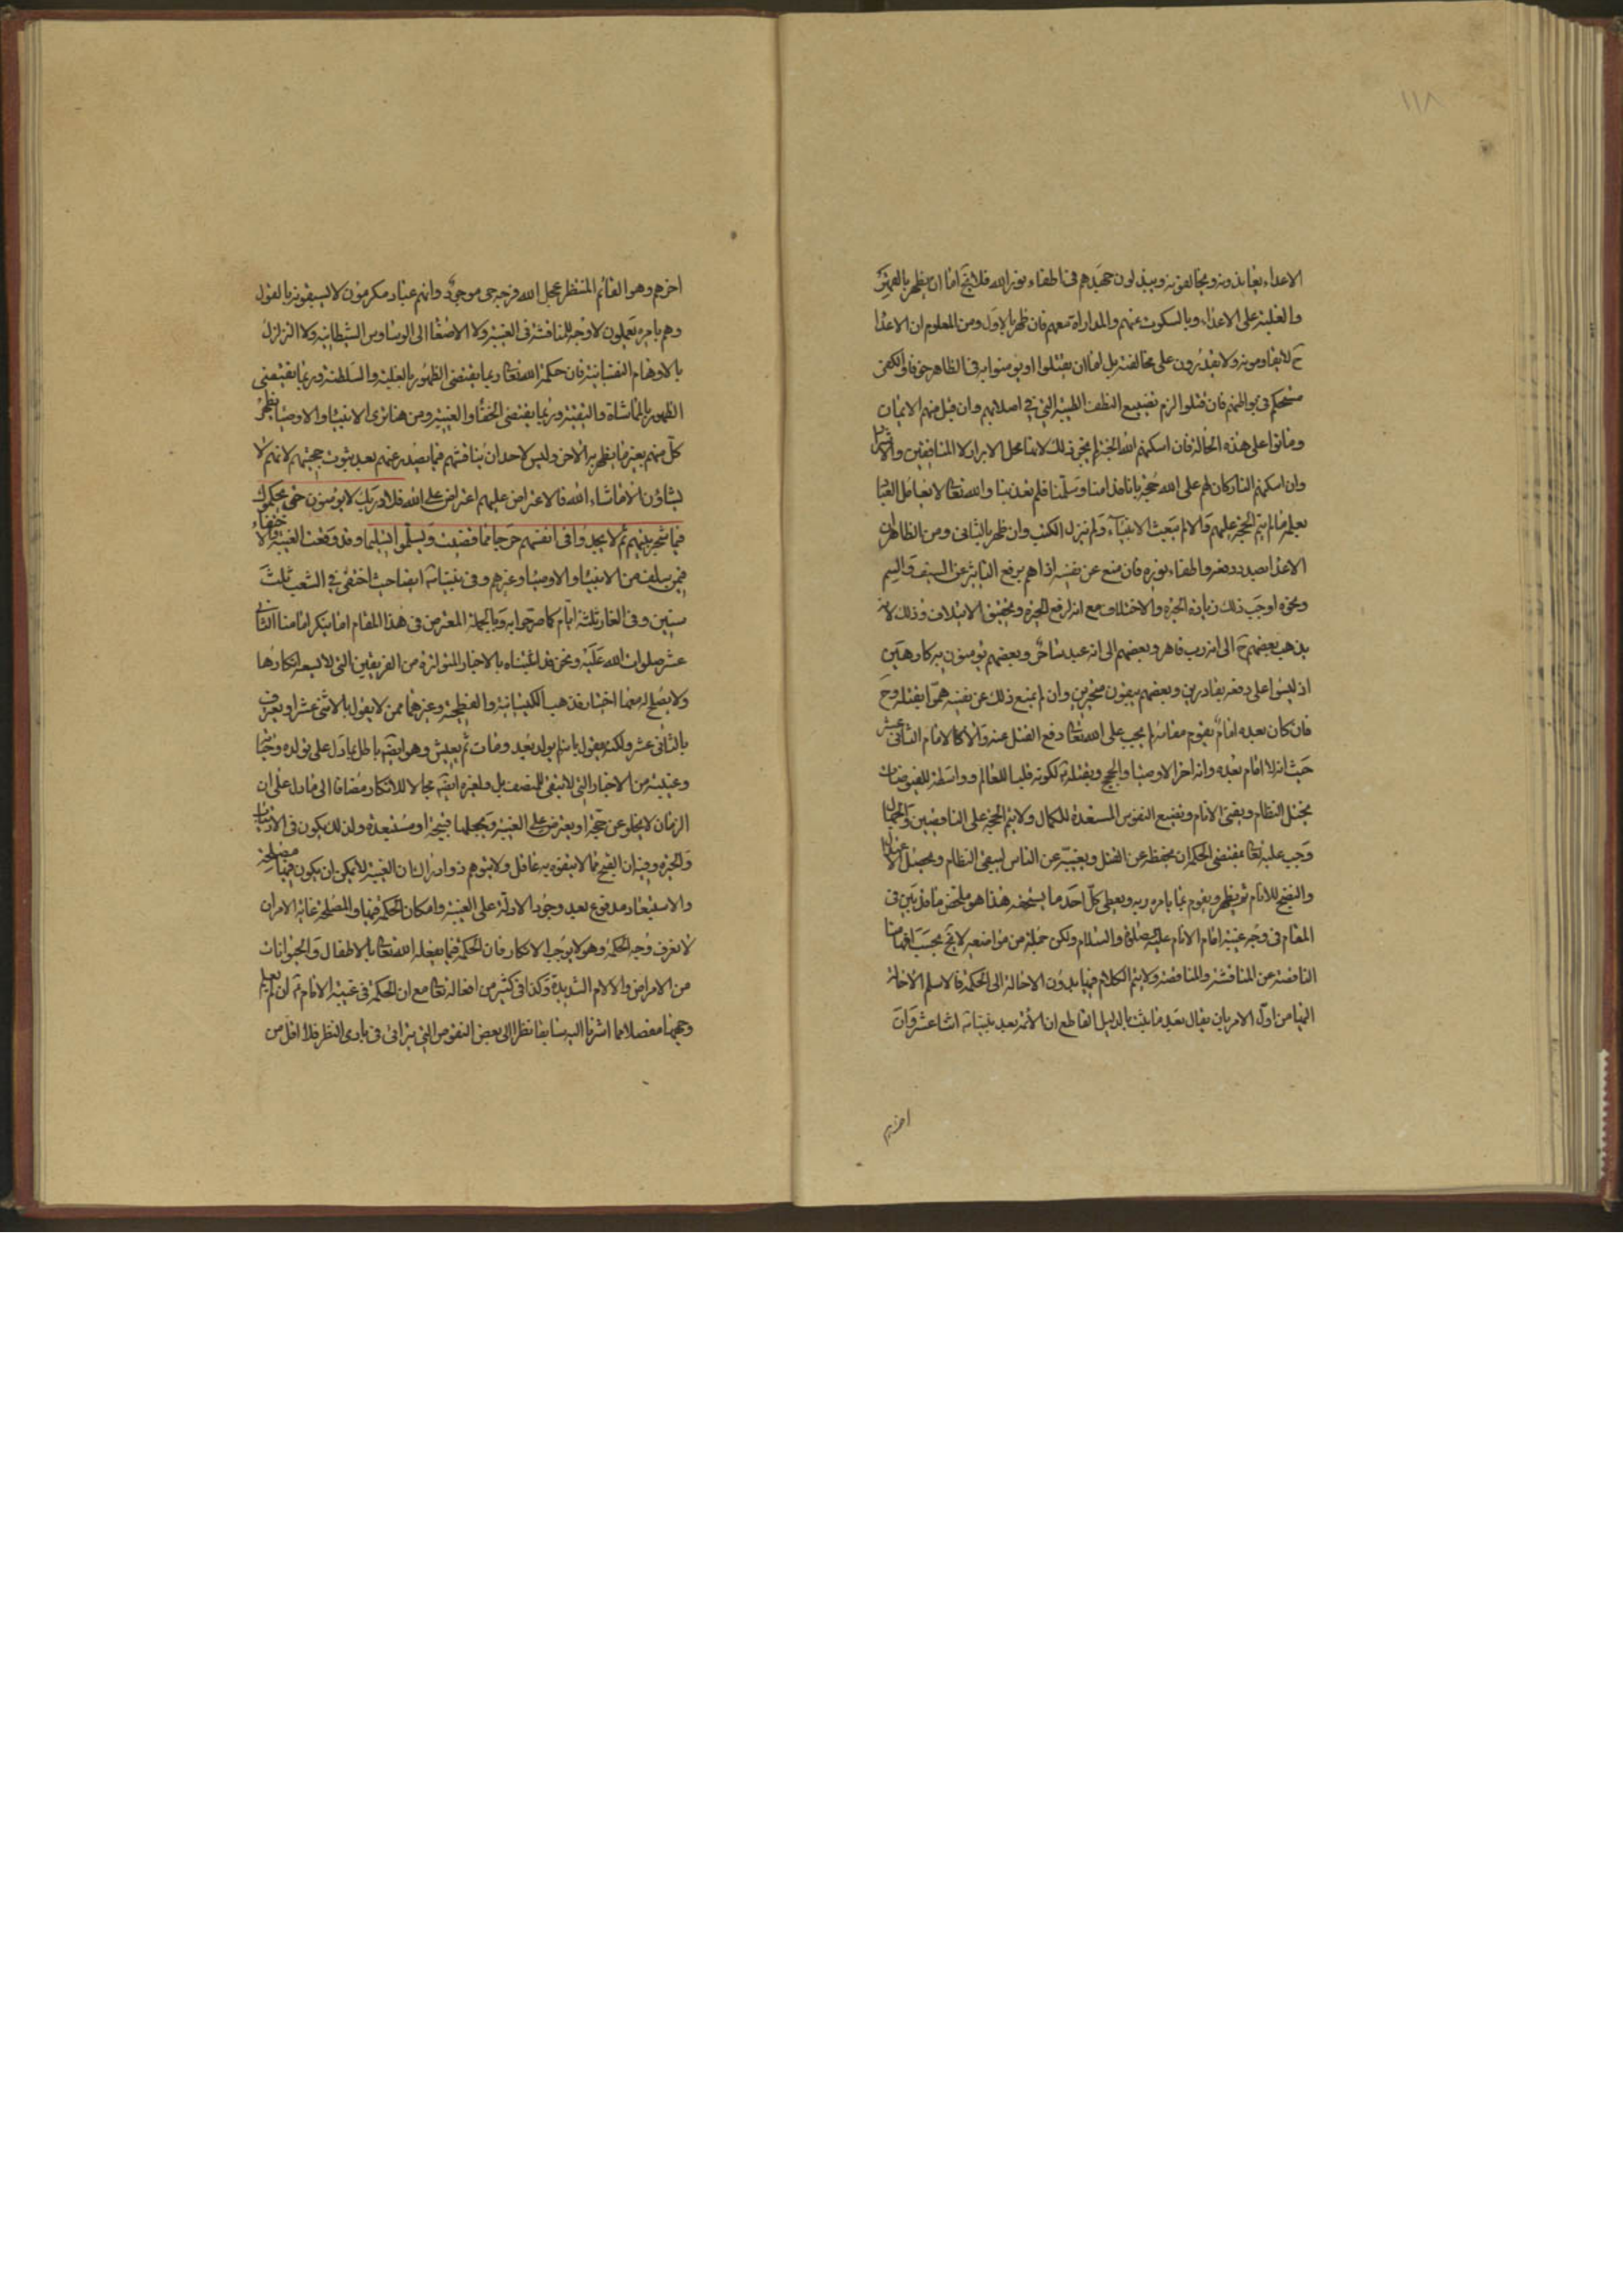 ١١٨
الاعداء يعاندونه ويخالفونه ويبذلون جهدهم في اطفاء نور الله فلا يخ اما ان يظهر بالقهر
والغلبة على الاعداء وبالسكوت عنهم والمداراة معهم فان ظهر بالاول ومن المعلوم ان الاعدا
ح لا يقاومونه ولا يقدرون على مخالفته بل اما ان يقتلوا او يومنوا به في الظاهر خوفا والكفر
مستحكم في بواطنهم فان قتلوا لزم تضييع النطف الطيبة التي في اصلابهم وان قبل منهم الايمان
وماتوا على هذه الحالة فان اسكنهم الله الجنة لم يجز ذلك لانها محل الابرار لا المنافقين والاشرار
وان اسكنهم النار كان لهم على الله حجة بانا قد امنا وسلمنا فلم تعذبنا والله تعا لا يعامل العباد
بعلمه ما لم يتم الحجة عليهم والا لم يبعث الانبياء ولم ينزل الكتب وان ظهر بالثاني ومن الظاهر ان
الاعدا بصدد دفعه واطفاء نوره فان منع عن نفسه اذاهم برفع التاثير عن السيف والسم
ونحوه اوجب ذلك زيادة الحيرة والاختلاف مع انه لرفع الحيرة وتحقيق الايتلاف وذلك لانه
يذهب بعضهم ح الى انه رب قاهر وبعضهم الى انه عبد ساحر وبعضهم يومنون به كارهين
اذ ليسوا على دفعه بقادرين وبعضهم يبقون متحيرين وان لم يمنع ذلك عن نفسه هموا بقتله وح
فان كان بعده امام يقوم مقامه لم يجب على الله تعا دفع القتل عنه والا كالامام الثاني عشر
حيث انه لا امام بعده وانه اخر الاوصيا والحجج وبقتله ثم لكونه قلبا للعالم وواسطة للفيوضات
يختل النظام ويفنى الانام وتضيع النفوس المستعدة للكمال ولا يتم الحجة على الناقصين والجهال
وجب عليه تعا بمقتضى الحكمة ان يحفظه عن القتل ويغيبه عن الناس ليبقى النظام ويحصل
والنضج للانام ثم يظهر ويقوم بما يامره ربه ويعطى كل احد ما يستحقه هذا هو ملخص ما قد بين في
المقام في وجه غيبة امام الانام عليه الصلوة والسلام ولكن جملة من مواضعه لا يخ بحسب افهامنا
الناقصة عن المناقشة والمناقضة ولا يتم الكلام فيها بدون الاحالة الى الحكمة فالاسلم الاحالة
اليها من اول الامر بان يقال بعد ما ثبت بالدليل القاطع ان الائمة بعد نبينا ص اثنا عشر وان
اخرهم
اخرهم وهو القائم المنتظر عجل الله فرجه حي موجود وانهم عباد مكرمون لا يسبقونه بالقول
وهم بامره يعملون لا وجه للمناقشة في الغيبة ولا الاصغا الى الوساوس الشيطانية ولا التزلزل
بالاوهام النفسانية فان حكمة الله تعا ربما يقتضى الظهور بالغلبة والسلطنة وربما يقتضى
الظهور بالمماشاة والتقية وربما يقتضى الخفا والغيبة ومن هنا ترى الانبيا والاوصيا يظهر
كل منهم بغير ما يظهر به الاخر وليس لاحد ان يناقشهم فيما يصدر عنهم بعد ثبوت حجيتهم لانهم لا
يشاؤن الا ما شاء الله فالاعتراض عليهم اعتراض على الله فلا وربك لا يومنون حتى يحكموك
فيما شجر بينهم ثم لا يجدوا في انفسهم حرجا مما قضيت ويسلموا تسليما وقد وقعت الغيبة والاختفاء
فيمن سلف من الانبيا والاوصيا وغيرهم وفي نبينا ص ايضا حيث اختفى في الشعب ثلث
سنين وفي الغار ثلثة ايام كما صرحوا به وبالجملة المعترض في هذا المقام اما ينكر امامنا الثاني
عشر صلوات الله عليه ونحن قد اثبتناه بالاخبار المتواترة من الفريقين التي لا يسعه انكارها
ولا يصلح له معها اختيار مذهب الكيسانية والفطحية وغيرهما ممن لا يقول بالاثنى عشر او يعترف
بالثاني عشر ولكنه يقول بانه لم يولد بعد ومات ثم يعيش وهو ايضا باطل بما دل على تولده وحياته
وغيبته من الاخبار التي لا تبقى للمنصف بل ولغيره ايضا مجالا للانكار مضافا الى ما دل على ان
الزمان لا يخلو عن حجة او يعترض على الغيبة ويجعلها قبيحة او مستبعدة ولذلك يكون في الارتياب
والحيرة وفيه ان القبح مما لا يتفوه به عاقل ولا يتوهم ذو ادراك ان الغيبة لا يمكن ان يكون فيها مصلحة
والاستبعاد مدفوع بعد وجود الادلة على الغيبة وامكان الحكمة فيها والمصلحة غاية الامر ان
لا نعرف وجه الحكمة وهو لا يوجب الانكار فان الحكمة فيما يفعله الله تعا بالاطفال والحيوانات
من الامراض والالام الشديدة وكذا في كثير من افعاله تعا مع ان الحكمة في غيبة الامام ع ان لم يعلم
وجهها مفصلا مما اشرنا اليه سابقا نظرا الى بعض النقوض التي يترائى في بادى النظر فلا اقل من